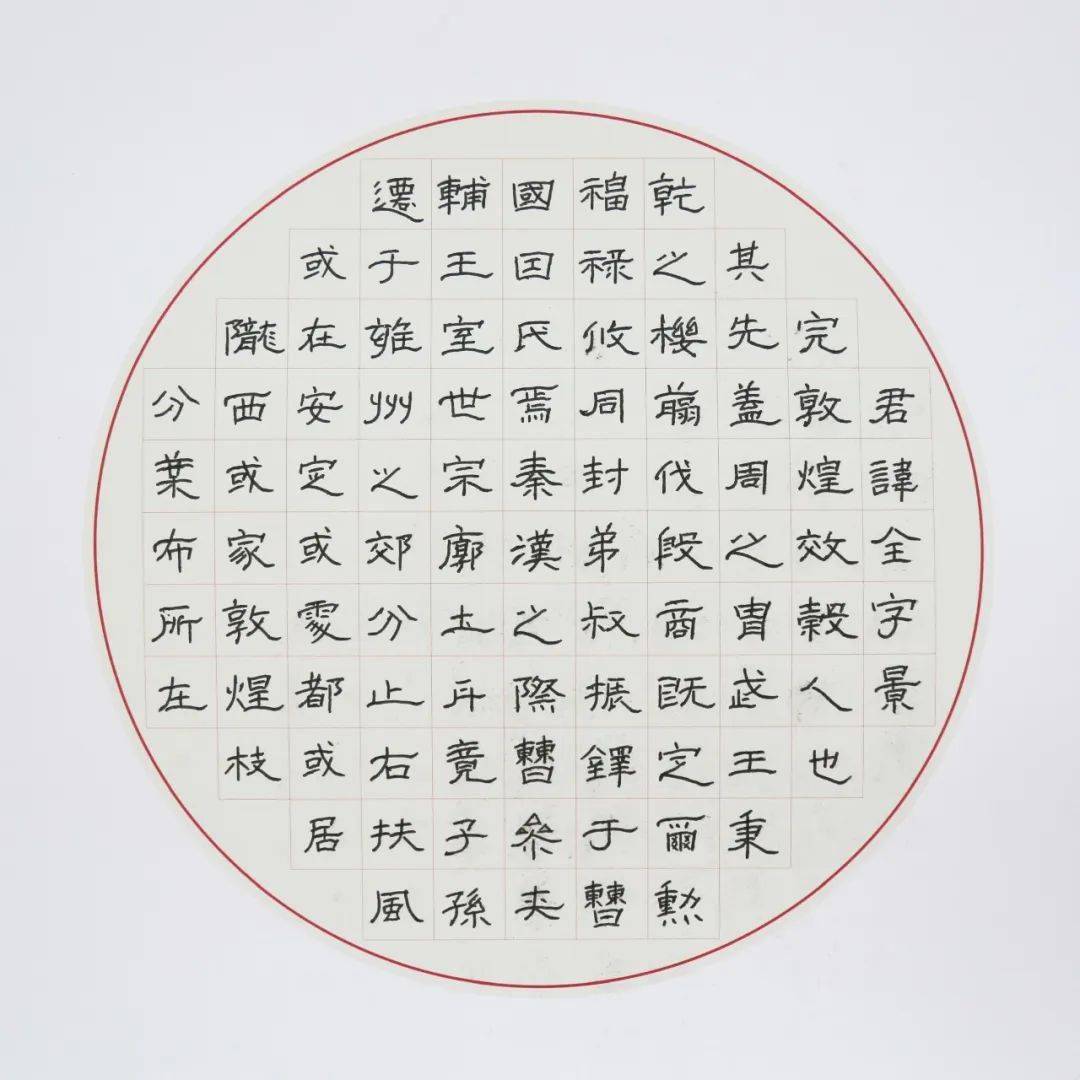 君諱全字景
完敦煌效穀人也
其先蓋周之胄武王秉
乾之機翦伐殷商既定爾勲
福禄攸同封弟叔振鐸于曹
國因氏焉秦漢之際曹參夾
輔王室世宗廓土斥竟子孫
遷于雍州之郊分止右扶風
或在安定或處都或居
隴西或家敦煌枝
分葉布所在